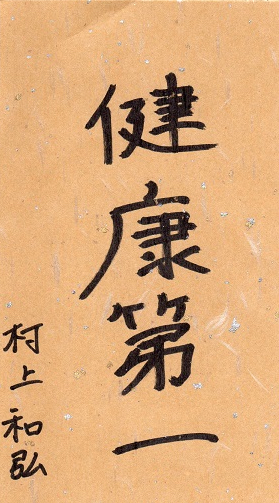 健康第一
村上和弘